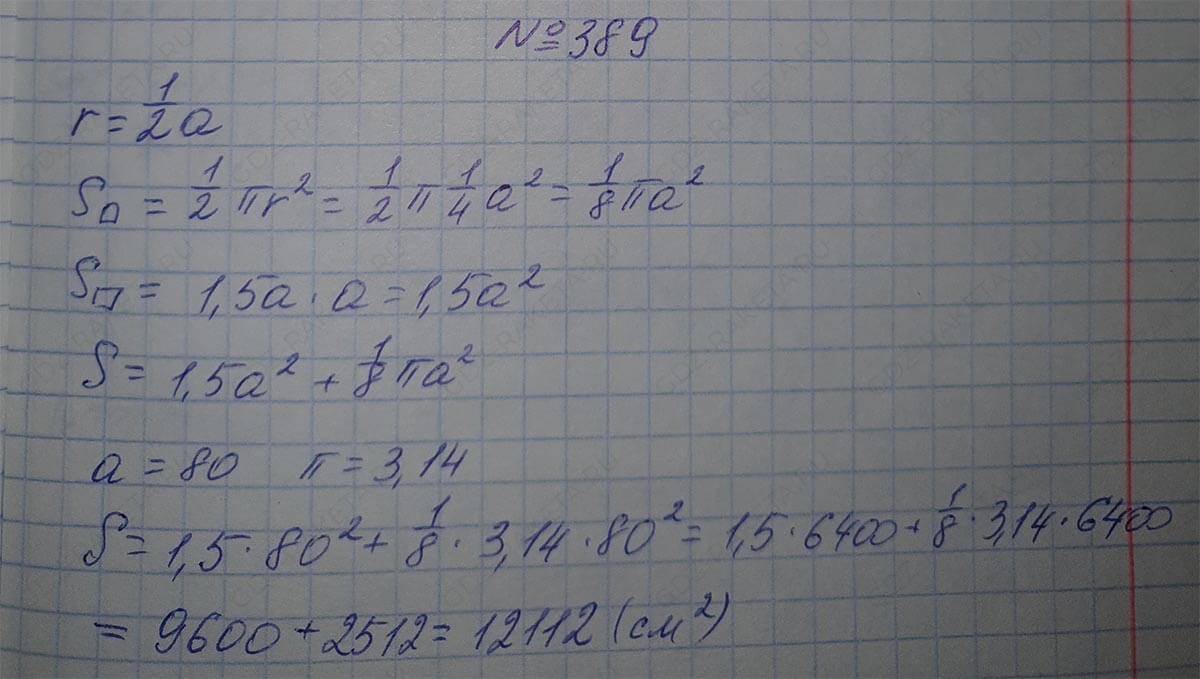 №389
r = 1/2 a
S⌓ = 1/2 πr² = 1/2 π 1/4 a² = 1/8 πa²
S▭ = 1,5a · a = 1,5a²
S = 1,5a² + 1/8 πa²
a = 80 π = 3,14
S = 1,5 · 80² + 1/8 · 3,14 · 80² = 1,5 · 6400 + 1/8 · 3,14 · 6400
= 9600 + 2512 = 12112 (см²)